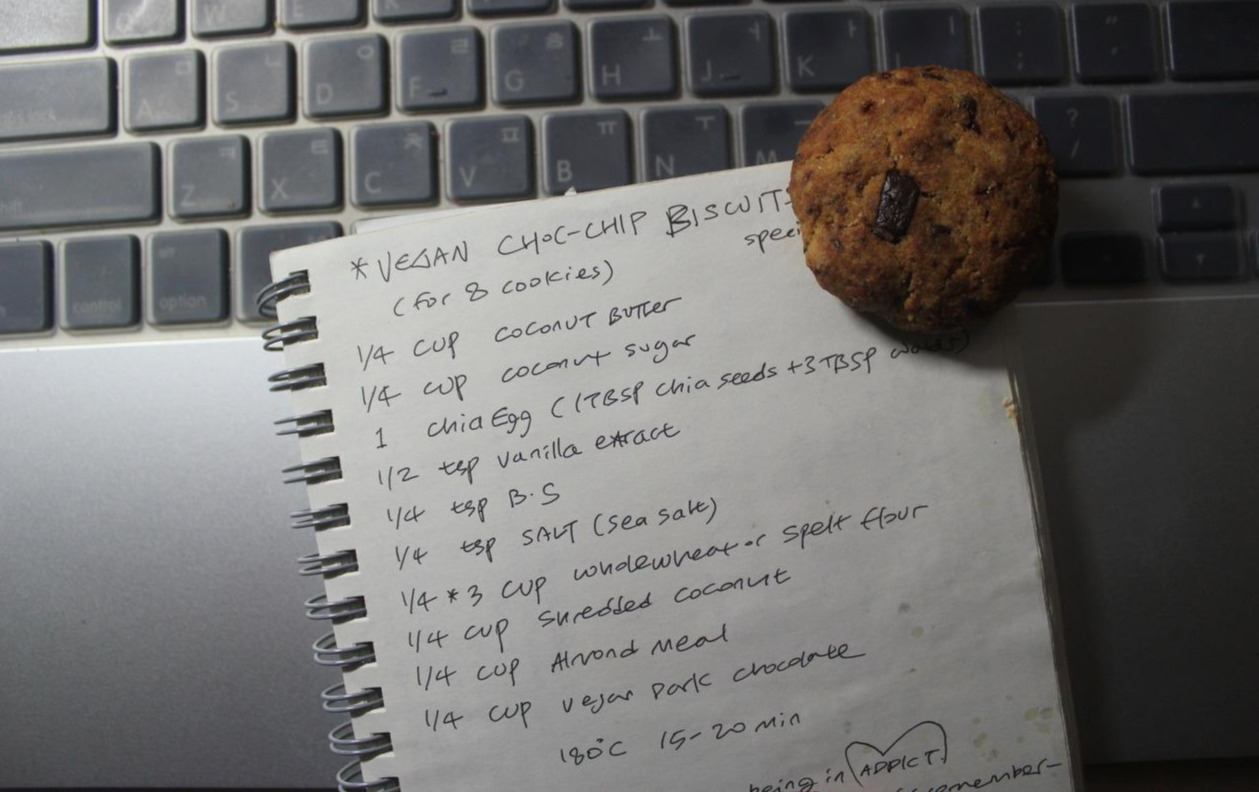 W E
A S D F G H J K L : ;
Z X C V B N M ? /
control option
ㅁ ㄴ ㅇ ㄹ ㅎ ㅗ ㅓ ㅏ ㅣ
ㅋ ㅌ ㅊ ㅍ ㅠ ㅜ
* VEGAN CHOC-CHIP BISCUIT
(for 8 cookies)
1/4 CUP COCONUT BUTTER
1/4 CUP coconut sugar
1 chia Egg (1TBSP chia seeds +3TBSP water)
1/2 tsp vanilla extract
1/4 tsp B.S
1/4 tsp SALT (sea salt)
1/4 * 3 CUP wholewheat or spelt flour
1/4 CUP shredded coconut
1/4 CUP Almond meal
1/4 CUP vegan Dark chocolate
180°C 15-20 min
being in ADDICT
remember-